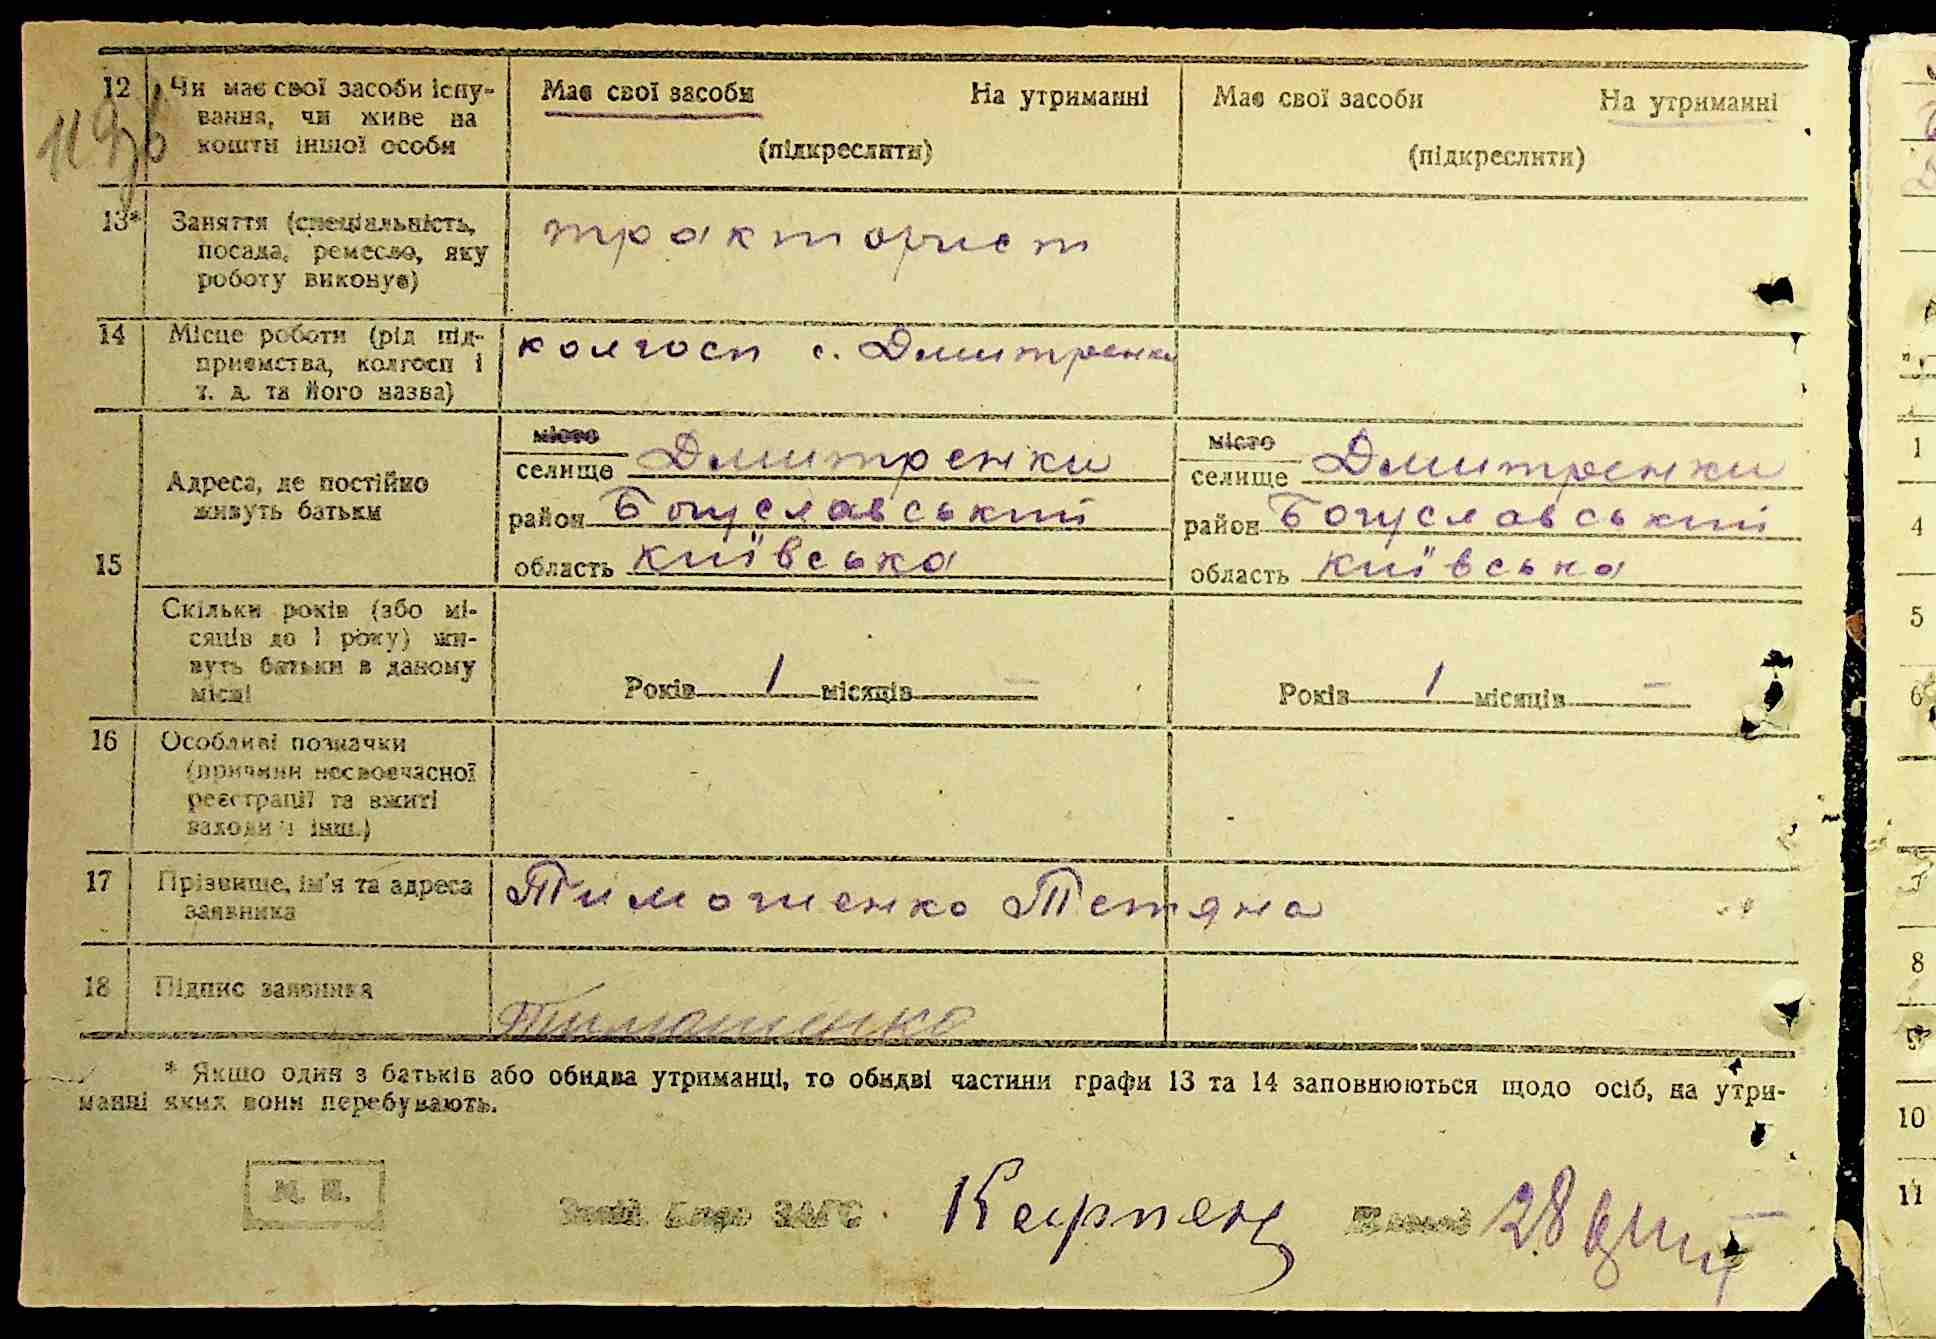 12 Чи має свої засоби існу- Має свої засоби На утриманні Має свої засоби На утриманні
вання, чи живе на
кошти іншої особи (підкреслити) (підкреслити)
13* Заняття (спеціальність, тракторист
посада, ремесло, яку
роботу виконує)
14 Місце роботи (рід під- колгосп с. Дмитренки
приємства, колгосп і
т. д. та його назва)
15 Адреса, де постійно живуть батьки
місто місто
селище Дмитренки селище Дмитренки
район Богуславський район Богуславський
область Київська область Київська
Скільки років (або мі-
сяців до 1 року) жи-
вуть батьки в даному
місці Років 1 місяців — Років 1 місяців —
16 Особливі позначки
(причини несвоєчасної
реєстрації та вжиті
заходи і інш.)
17 Прізвище, ім'я та адреса Тимошенко Тетяна
заявника
18 Підпис заявника Тимошенко
* Якщо один з батьків або обидва утриманці, то обидві частини графи 13 та 14 заповнюються щодо осіб, на утри-
манні яких вони перебувають.
М. П. Зав. Бюро ЗАГС Карпенк 28
1
4
5
6
8
9
10
11